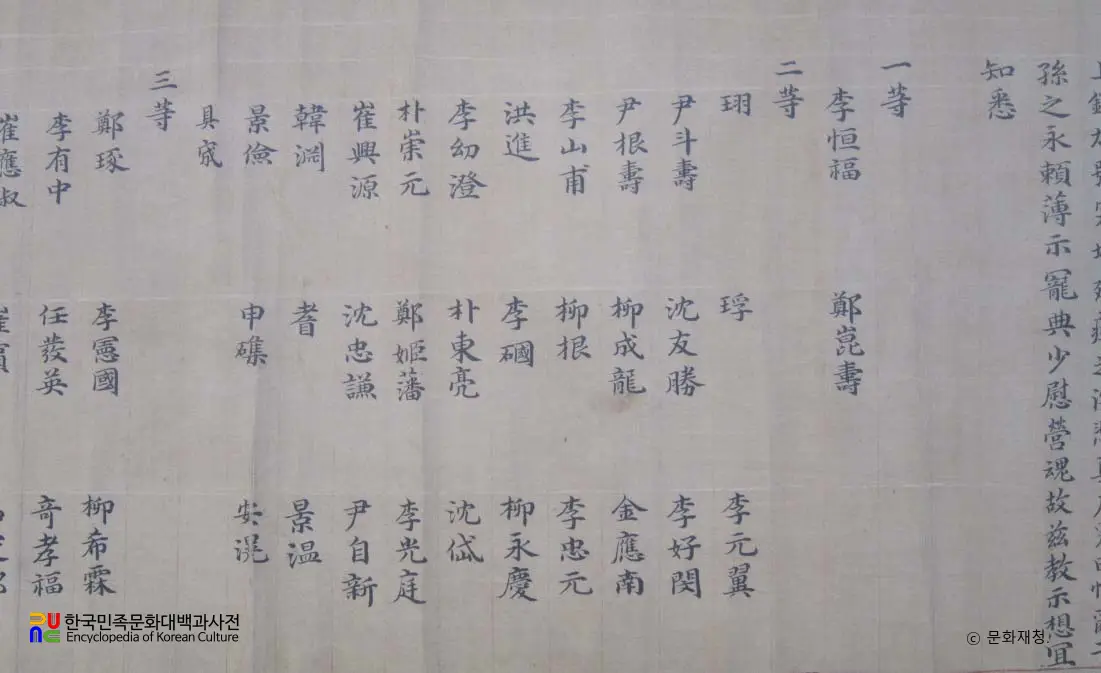 孫之永頼薄示寵典少慰營魂故茲教示想宜
知悉
一等
李恒福 鄭崑壽
二等
珝 琈 李元翼
尹斗壽 沈友勝 李好閔
尹根壽 柳成龍 金應南
李山甫 柳根 李忠元
洪進 李𥕏 柳永慶
李幼澄 朴東亮 沈岱
朴崇元 鄭姬藩 李光庭
崔興源 沈忠謙 尹自新
韓淵 耆 景溫
景儉 申磼 安滉
具宬
三等
鄭琢 李憲國 柳希霖
李有中 任發英 奇孝福
崔應淑
한국민족문화대백과사전
Encyclopedia of Korean Culture
ⓒ 문화재청.